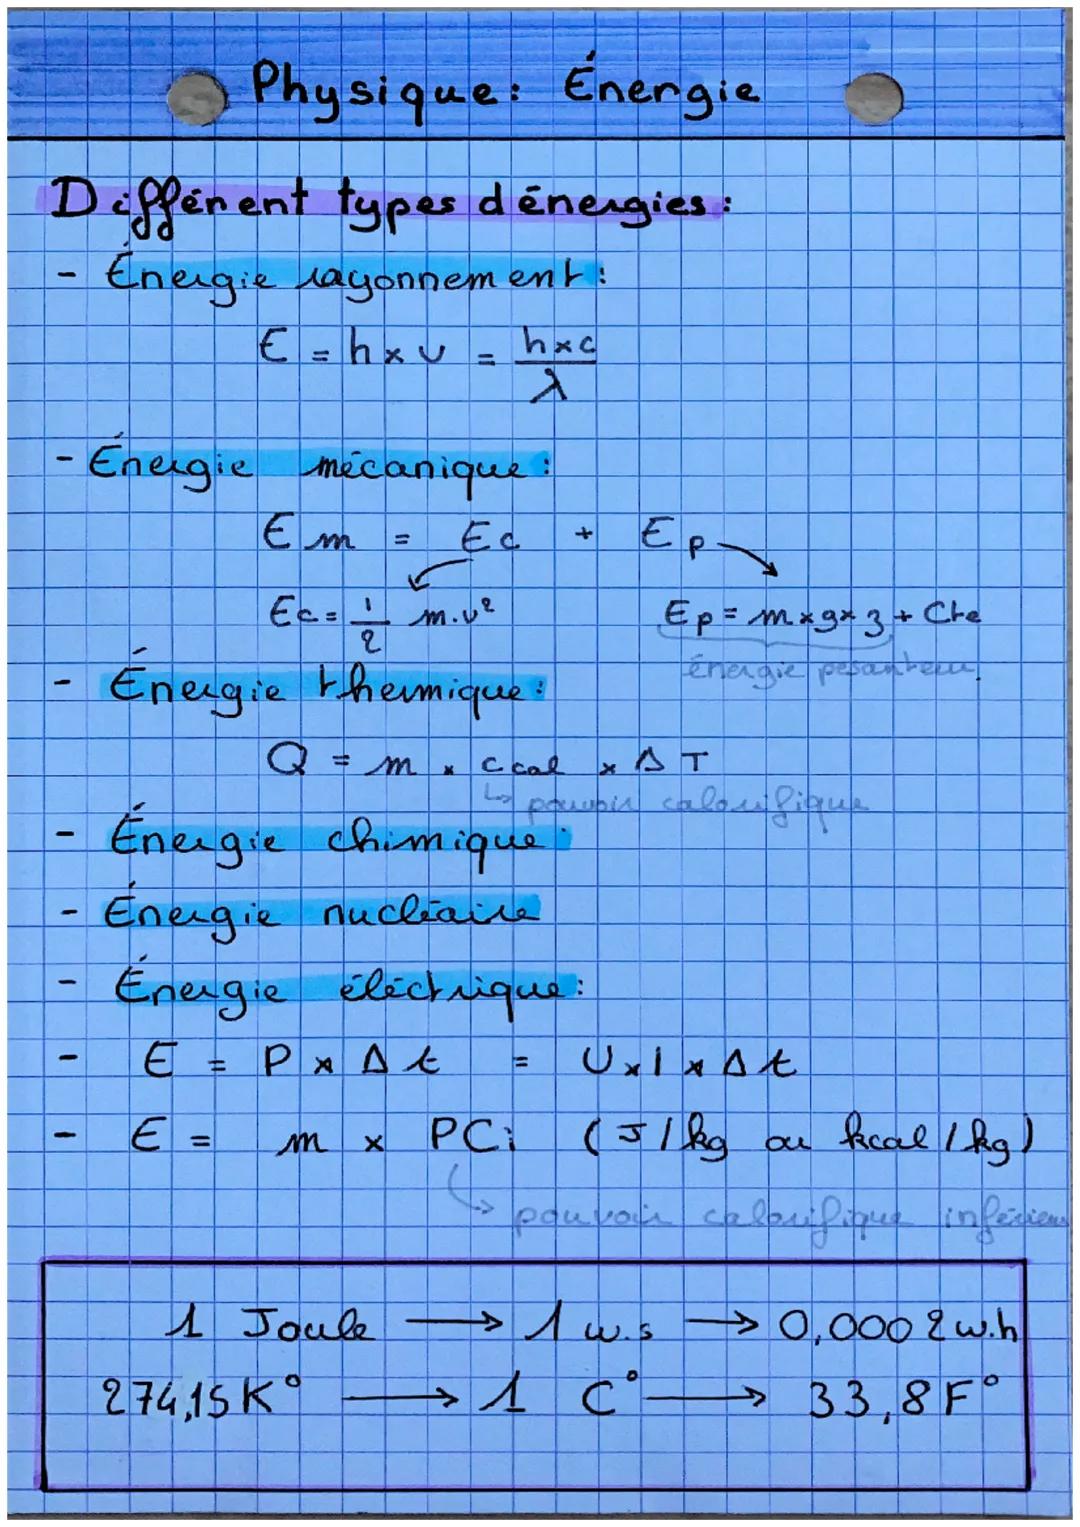 Physique: Énergie
Différent types d'énergies:
- Énergie rayonnement:
E = h x υ = h x c / λ
- Énergie mécanique:
Em = Ec + Ep
Ec = 1/2 m.v² Ep = m x g x z + Cte
énergie pesanteur
- Énergie thermique:
Q = m x ccal x ΔT
↳ pouvoir calorifique
- Énergie chimique:
- Énergie nucléaire
- Énergie éléctrique:
- E = P x Δt = U x I x Δt
- E = m x PCi (J/kg ou kcal/kg)
↳ pouvoir calorifique inférieur
1 Joule → 1 w.s → 0,0002 w.h
274,15K° → 1 C° → 33,8F°